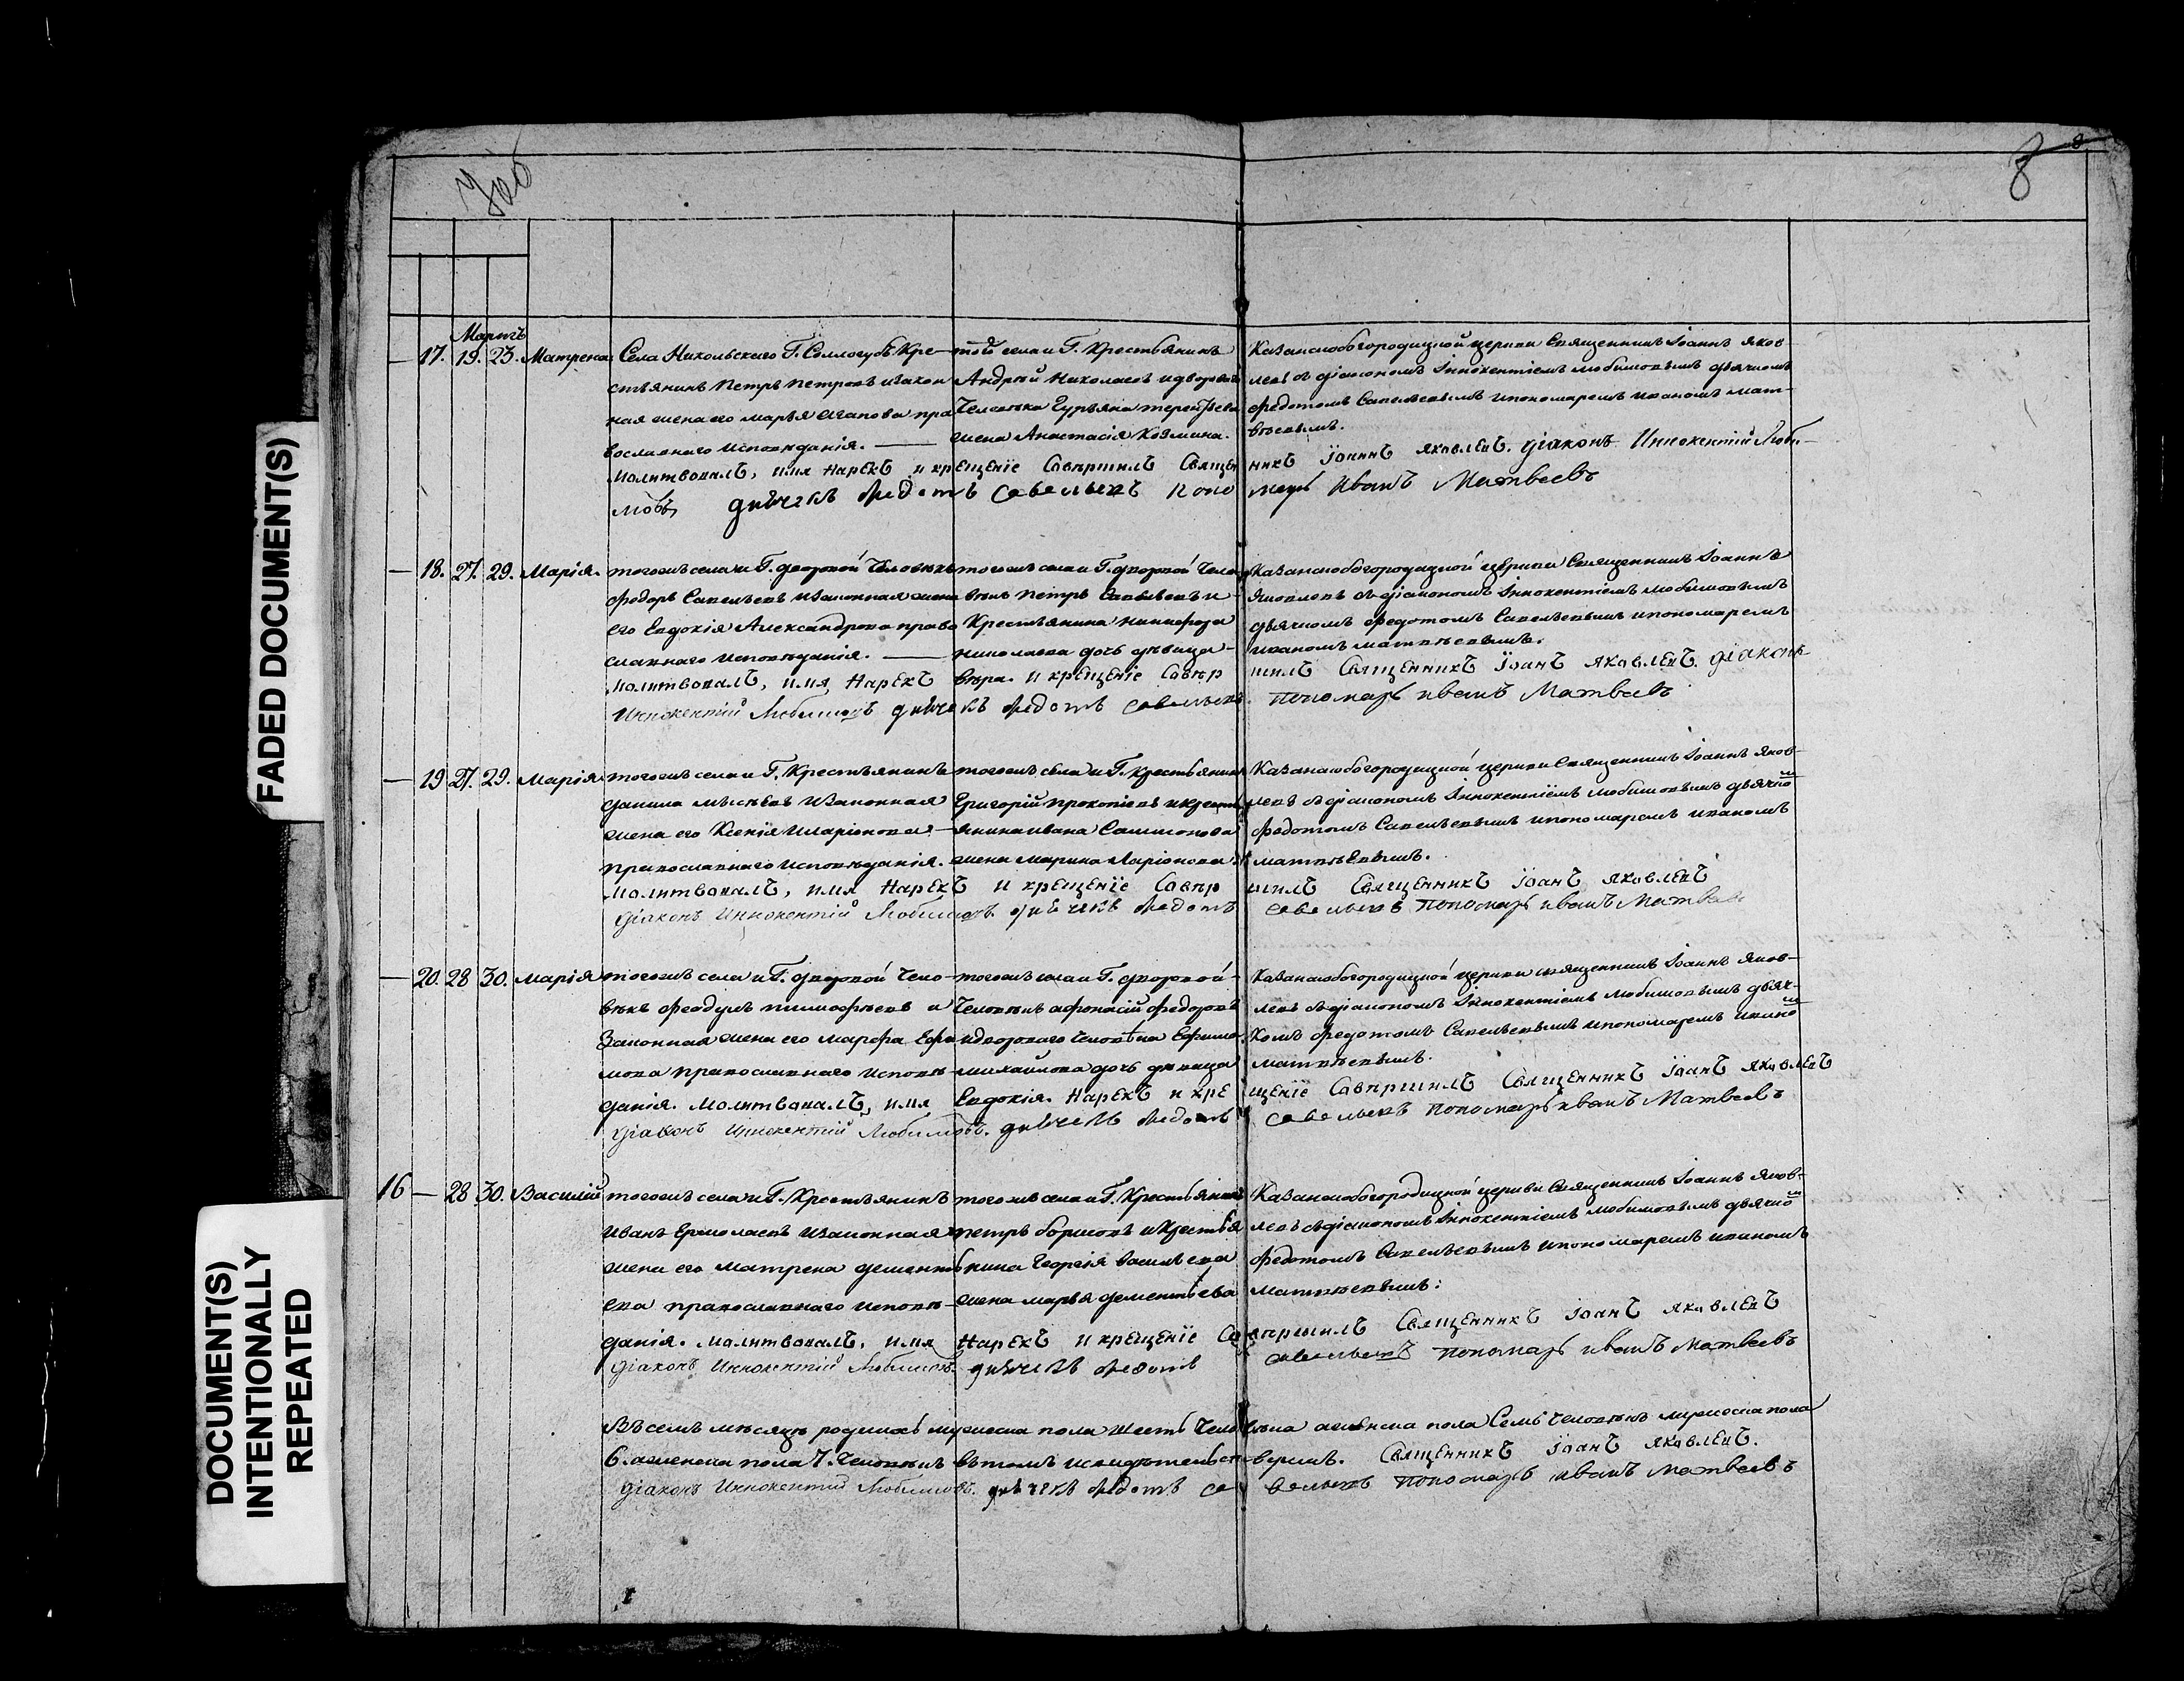 8
8
Мартъ
— 17. 19. 23. Матрена Села Никольскаго Г. Соллогубъ Кре-
стьянинъ Петръ Петровъ и закон
ная жена его Марья Агапова пра
вославнаго исповѣданія. —
того села и Г. Крестьянинъ
Андрей Николаевъ и двороваго
Человѣка Гурьяна Терентьева
жена Анастасія Козмина.
Казанскобогородицкой церкви Священникъ Іоаннъ Яков
левъ съ діакономъ Іннокентіемъ Любимовымъ дьячкомъ
Федотомъ Савельевымъ и пономаремъ Иваномъ Мат-
вѣевымъ.
Молитвовалъ, имя нарекъ и крещеніе Совершилъ Священникъ Іоаннъ Яковлевъ. Діаконъ Иннокентій Люби-
мовъ, дьячекъ Федотъ Савельевъ пономарь Иванъ Матвеевъ
— 18. 27. 29. Марія. тогожъ села и Г. дворовой Человѣкъ
Федоръ Савельевъ и законная жена
его Евдокія Александрова право
славнаго исповѣданія. —
тогожъ села и Г. дворовой Чело
вѣкъ Петръ Савельевъ и
Крестьянина Никифора
Николаева дочь дѣвица
Вѣра.
Казанскобогородицкой церкви Священникъ Іоаннъ
Яковлевъ съ діакономъ Іннокентіемъ Любимовымъ
дьячкомъ Федотомъ Савельевымъ и пономаремъ
Иваномъ Матвѣевымъ.
Молитвовалъ, имя Нарекъ и крещеніе Совершилъ Священникъ Іоанъ Яковлевъ. Діаконъ
Иннокентій Любимовъ дьячекъ Федотъ Савельевъ. Пономарь Иванъ Матвеевъ
— 19 27. 29. Марія тогожъ села и Г. Крестьянинъ
Данила и законная
жена его Ксенія Иларіонова —
православнаго исповѣданія.
тогожъ села и Г. крестьянинъ
Григорій Прокопіевъ и крестья
янина Ивана Самсонова
жена Марина Ларіонова.
Казанскобогородицкой церкви Священникъ Іоаннъ Яков-
левъ съ діакономъ Іннокентіемъ Любимовымъ дьячко
Федотомъ Савельевымъ и пономаремъ Иваномъ
Матвѣевымъ.
Молитвовалъ, имя Нарекъ и крещеніе Совершилъ Священникъ Іоанъ Яковлевъ
Діаконъ Иннокентій Любимовъ. дьячекъ Федотъ Савельевъ Пономарь Иванъ Матвеев
— 20. 28 30. Марія тогожъ села и Г. дворовой Чело-
вѣкъ Феодулъ Тимофѣевъ и
Законная жена его Марфа Ефи
мова православнаго исповѣ-
данія.
тогожъ села и Г. дворовой —
Человѣкъ Афонасій Федоровъ
и двороваго Человѣка Ефима
Михайлова дочь дѣвица
Евдокія.
Казанскобогородицкой церкви священникъ Іоаннъ Яков-
левъ съ діакономъ Іннокентіемъ Любимовымъ дьяч-
комъ Федотомъ Савельевымъ и пономаремъ Ивано
Матвѣевымъ.
Молитвовалъ, имя Нарекъ и крещеніе Совершилъ Священникъ Іоанъ Яковлевъ
Діаконъ Иннокентій Любимовъ. дьячекъ Федотъ Савельевъ Пономарь Иванъ Матвеевъ
16 — 28 30. Василій тогожъ села и Г. Крестьянинъ
Иванъ Ермолаевъ и законная
жена его Матрена Дементь
ева православнаго исповѣ-
данія.
тогожъ села и Г. Крестьянинъ
Петръ Борисовъ и Крестья
нина Георгія Васильева
жена Марья Дементьева
Казанскобогородицкой церкви Священникъ Іоаннъ Яков-
левъ съ діакономъ Іннокентіемъ Любимовымъ дьячко
Федотомъ Савельевымъ и пономаремъ Иваномъ
Матвѣевымъ:
Молитвовалъ, имя Нарекъ и крещеніе Совершилъ Священникъ Іоанъ Яковлевъ
Діаконъ Иннокентій Любимовъ. дьячекъ Федотъ Савельевъ Пономарь Иванъ Матвеевъ
Въ семъ мѣсяцѣ родилось мужеска пола шесть Человѣка а женска пола Семь Человѣкъ мужеска пола
6. а женска пола 7. Человѣкъ въ томъ и свидѣтельствуемъ. Священникъ Іоанъ Яковлевъ.
Діаконъ Иннокентій Любимовъ. дьячекъ Федотъ Савельевъ Пономарь Иванъ Матвеевъ
FADED DOCUMENT(S)
DOCUMENT(S)
INTENTIONALLY
REPEATED